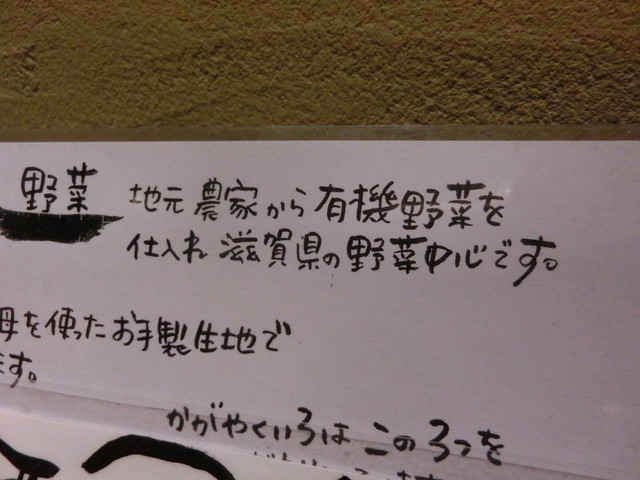 野菜 地元農家から有機野菜を
仕入れ 滋賀県の野菜中心です。
母を使ったお手製生地で
ます。
かがやくいろは この3つを